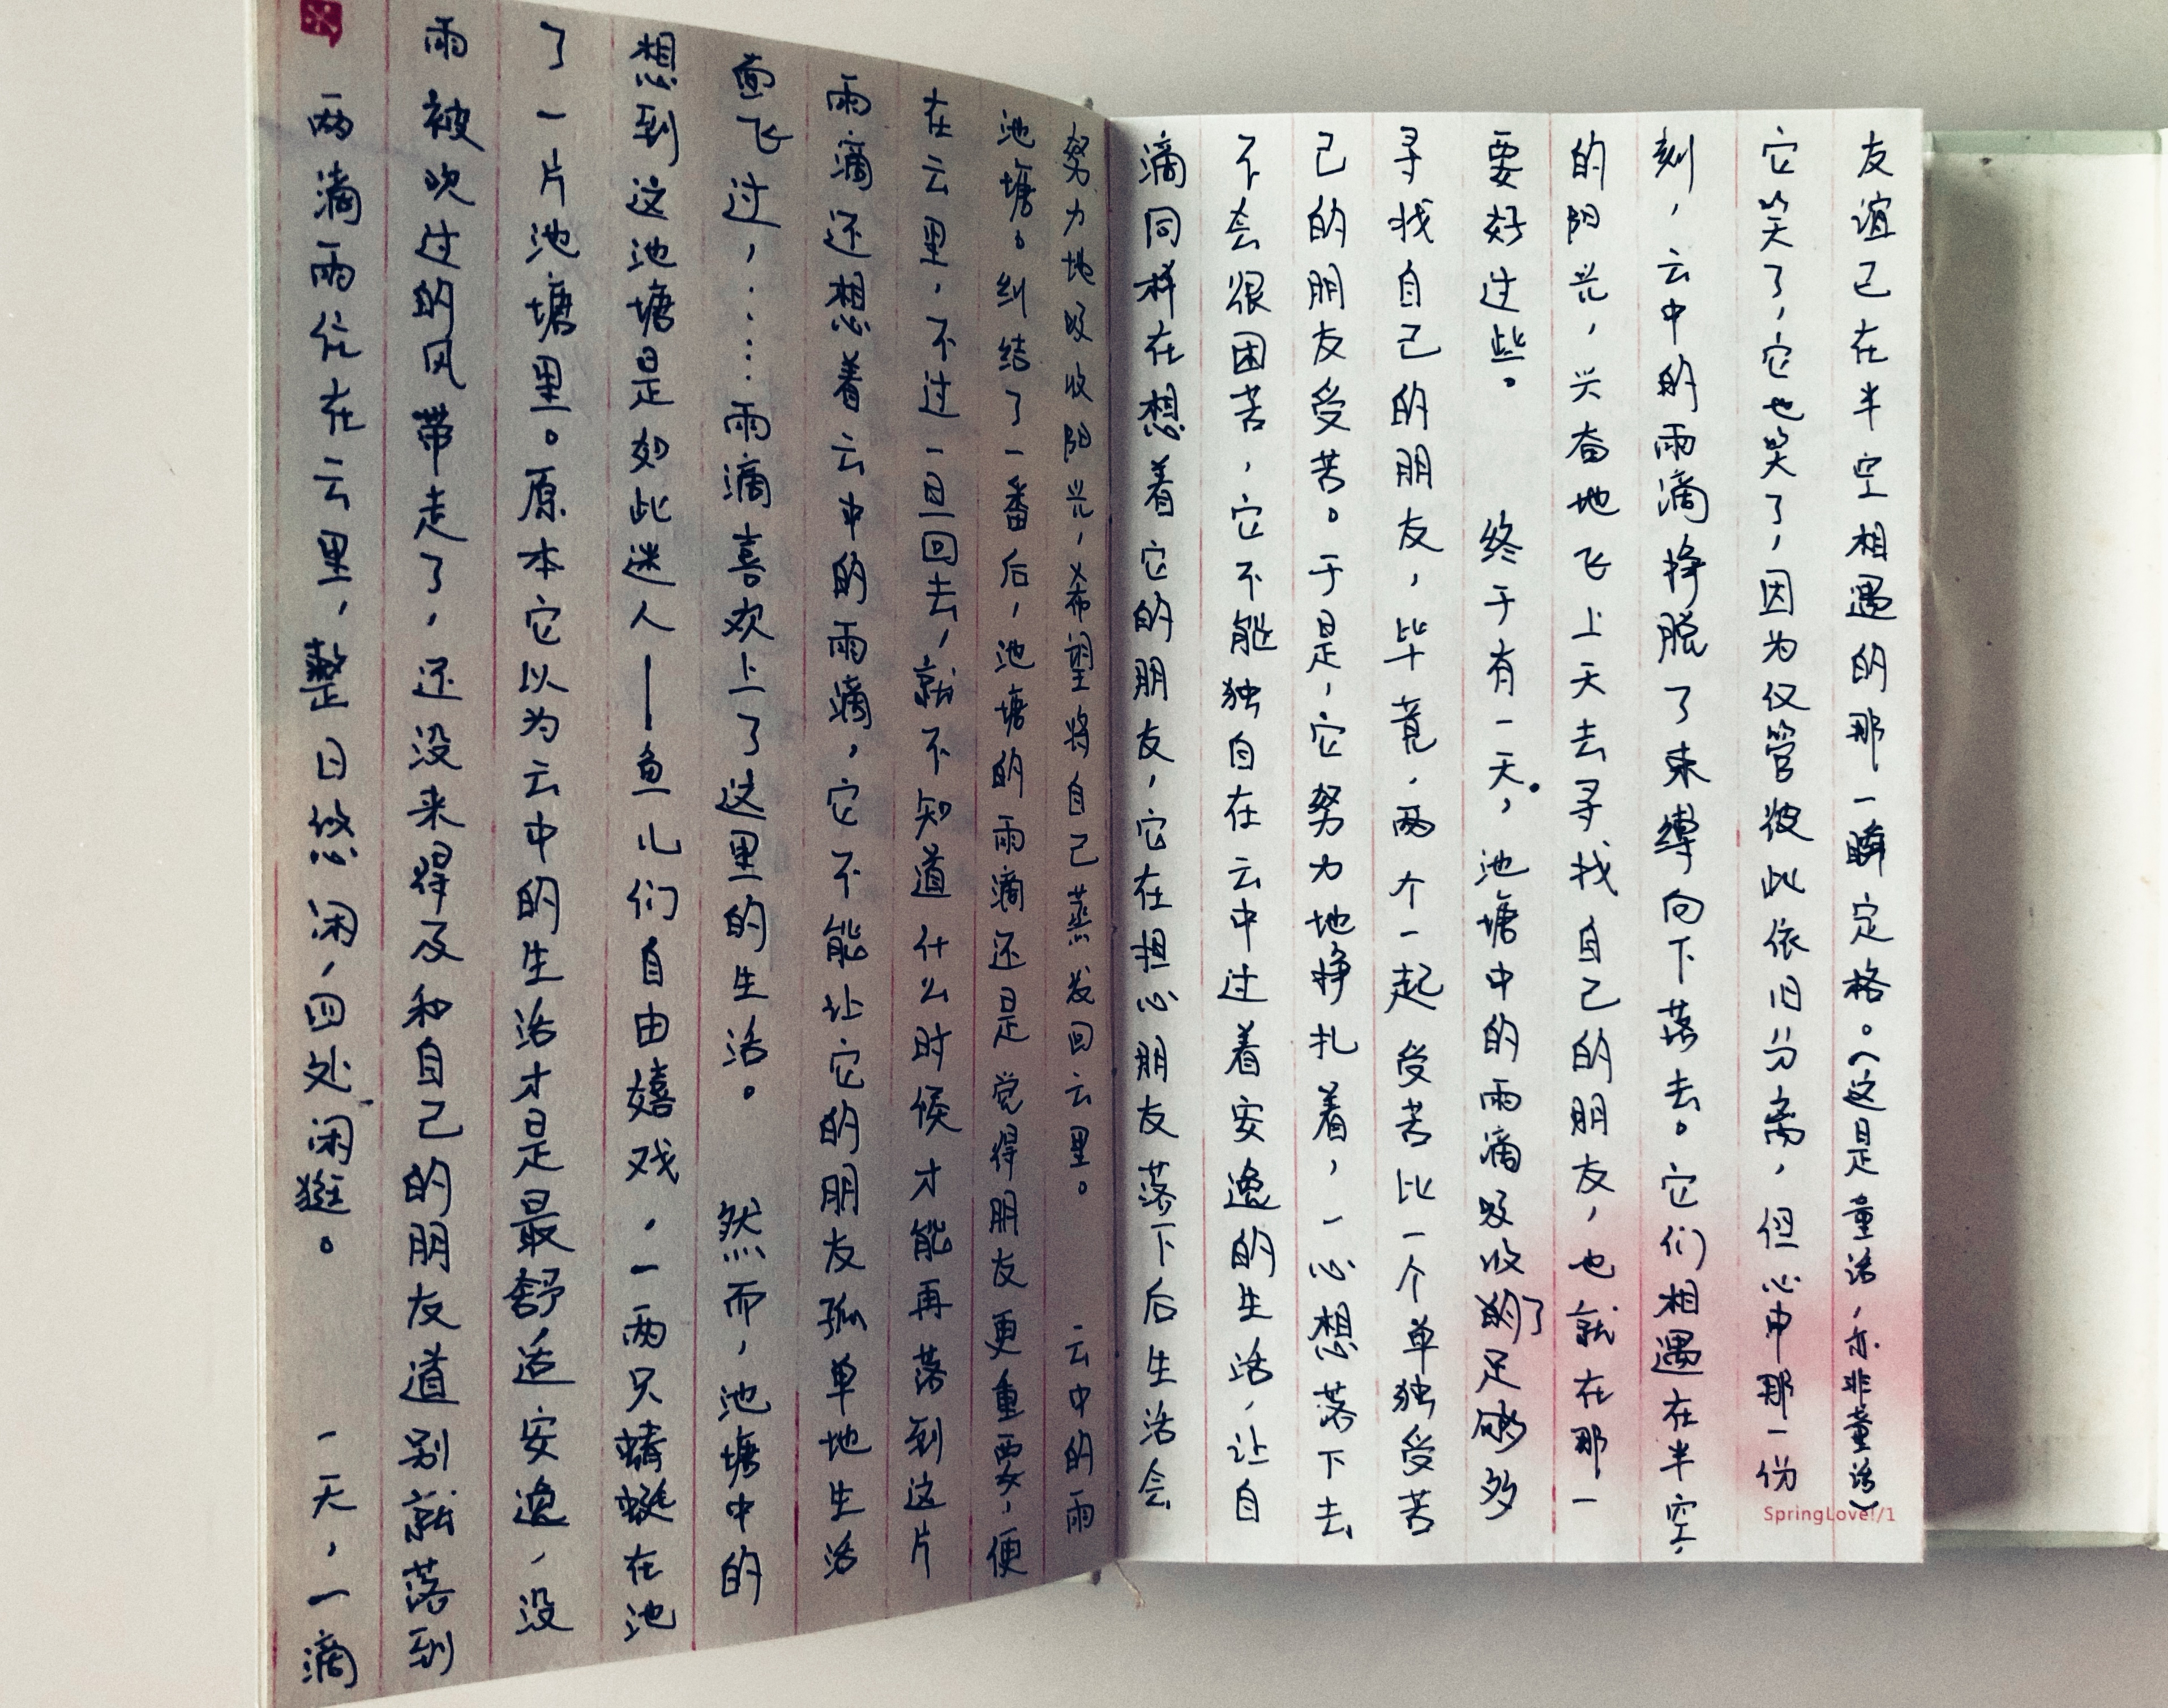 两滴雨住在云里，整日悠闲，四处闲逛。 一天，一滴
雨被吹过的风带走了，还没来得及和自己的朋友道别就落到
了一片池塘里。原本它以为云中的生活才是最舒适安逸，没
想到这池塘是如此迷人——鱼儿们自由嬉戏，一两只蜻蜓在池
面飞过，……雨滴喜欢上了这里的生活。 然而，池塘中的
雨滴还想着云中的雨滴，它不能让它的朋友孤单地生活
在云里，不过一旦回去，就不知道什么时候才能再落到这片
池塘。纠结了一番后，池塘的雨滴还是觉得朋友更重要，便
努力地吸收阳光，希望将自己蒸发回云里。 云中的雨
滴同样在想着它的朋友，它在担心朋友落下后生活会
不会很困苦，它不能独自在云中过着安逸的生活，让自
己的朋友受苦。于是，它努力地挣扎着，一心想落下去
寻找自己的朋友，毕竟，两个一起受苦比一个单独受苦
要好过些。 终于有一天，池塘中的雨滴吸收了足够多
的阳光，兴奋地飞上天去寻找自己的朋友，也就在那一
刻，云中的雨滴挣脱了束缚向下落去。它们相遇在半空，
它笑了，它也笑了，因为仅管彼此依旧分离，但心中那一份
友谊已在半空相遇的那一瞬定格。（这是童话，亦非童话）
SpringLove!/1